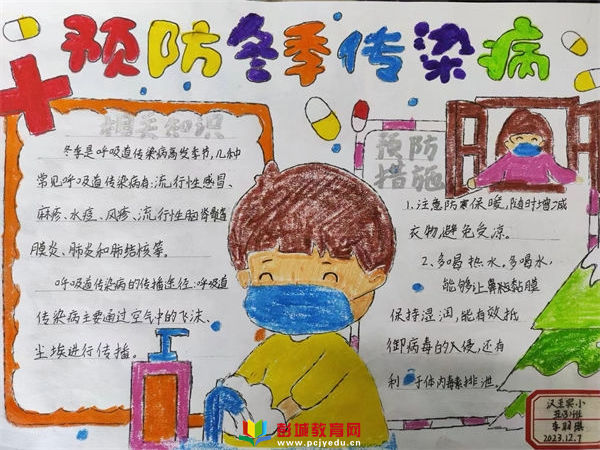 预防冬季传染病
相关知识
冬季是呼吸道传染病高发季节,几种
常见呼吸道传染病有:流行性感冒、
麻疹、水痘、风疹、流行性脑脊髓
膜炎、肺炎和肺结核等。
呼吸道传染病的传播途径:呼吸道
传染病主要通过空气中的飞沫、
尘埃进行传播。
预防
措施
1.注意防寒保暖,随时增减
衣物避免受凉。
2、多喝热水。多喝水,
能够让鼻粘黏膜
保持湿润,能有效抵
御病毒的入侵,还有
利于体内毒素排泄。
汉王实小
2023.12.7
彭城教育网
www.pcjyedu.cn